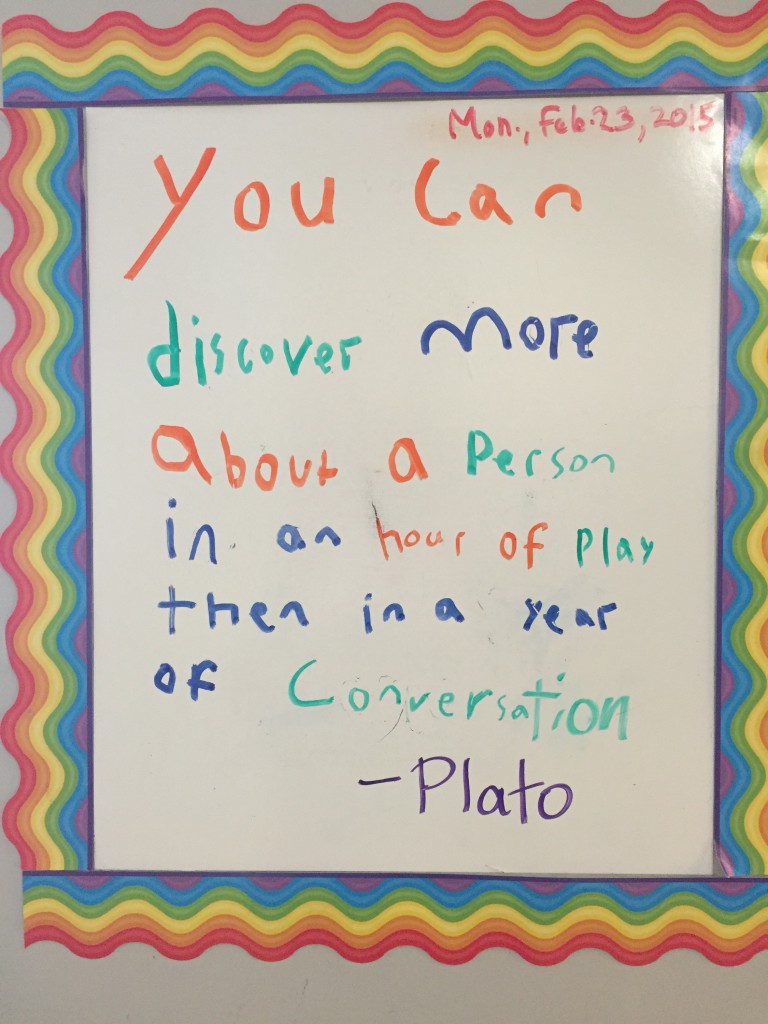 Mon., Feb. 23, 2015
You Can
discover more
About a Person
in an hour of Play
then in a year
of Conversation
- Plato